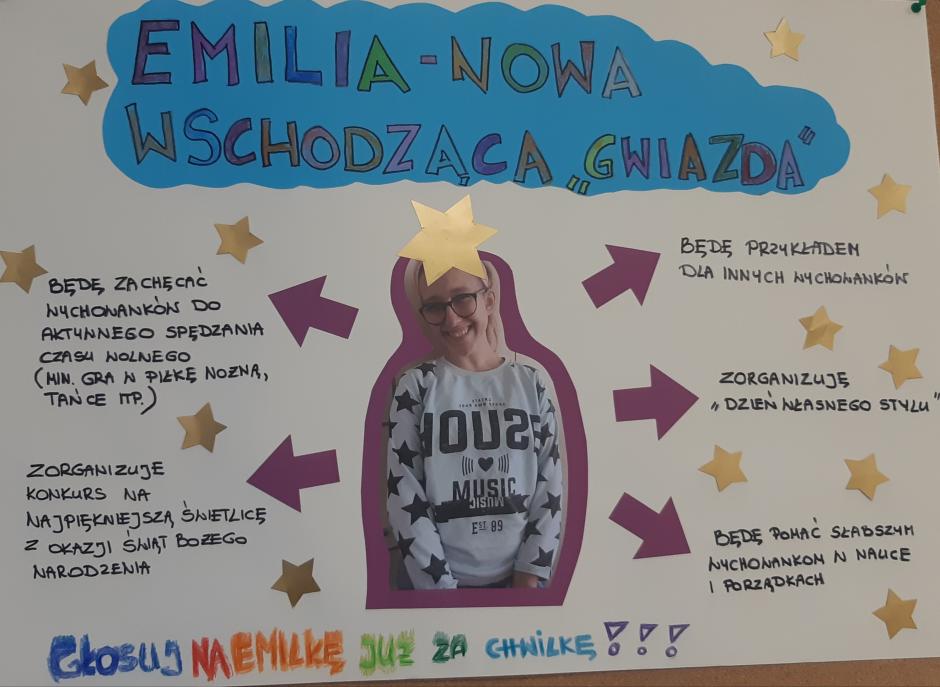 EMILIA - NOWA
WSCHODZĄCA „GWIAZDA"
BĘDĘ ZACHĘCAĆ
WYCHOWANKÓW DO
AKTYWNEGO SPĘDZANIA
CZASU WOLNEGO
(MIN. GRA W PIŁKĘ NOŻNĄ,
TAŃCE ITP.)
ZORGANIZUJE
KONKURS NA
NAJPIĘKNIEJSZĄ ŚWIETLICĘ
Z OKAZJI ŚWIĄT BOŻEGO
NARODZENIA
HOUSE
MUSIC
EST. 89
BĘDĘ PRZYKŁADEM
DLA INNYCH WYCHOWANKÓW
ZORGANIZUJĘ
„DZIEŃ WŁASNEGO STYLU"
BĘDĘ POMAĆ SŁABSZYM
WYCHOWANKOM W NAUCE
I PORZĄDKACH
GŁOSUJ NA EMILKĘ JUŻ ZA CHWILKĘ!!!